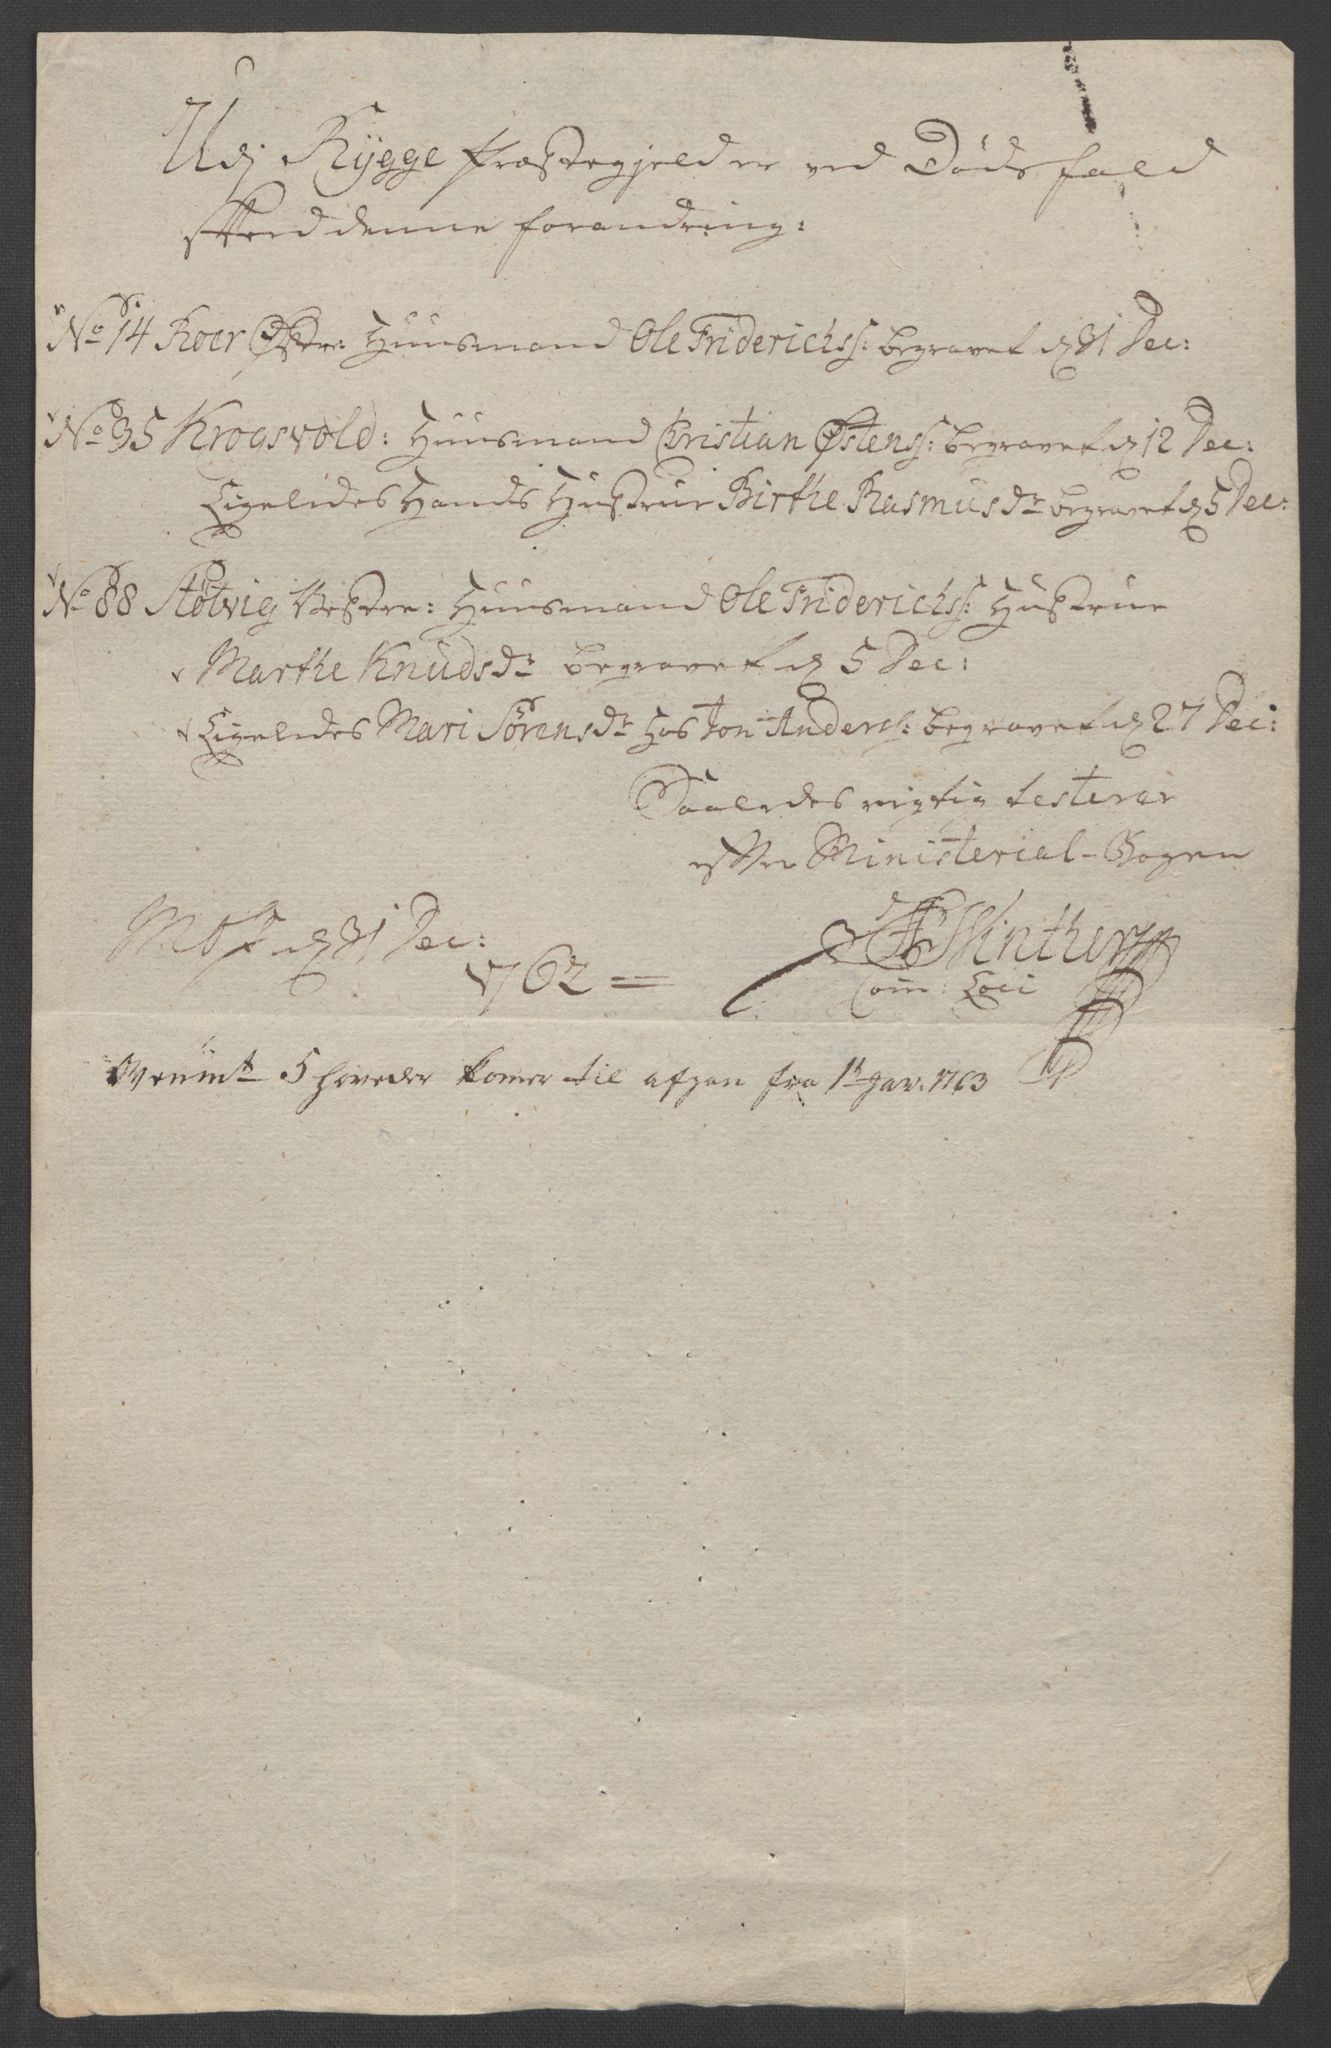 Udj Rygge Præstegjeld er ved Døds fald
skeed denne forandring:
No 14 Roer Østre: Huusmand Ole Friderichss: begravet d 31 Dec:
No 35 Krogsvold: Huusmand Christian Østenss: begravet d 12 Dec:
Ligeledes Hands Hustrue Birthe Rasmusdr begravet d 5 Dec:
No 88 Støtvig Vestre: Huusmand Ole Friderichs: Hustrue
Marthe Knudsdr begravet d 5 Dec:
Ligeledes Mari Sørensdr hos Jon Anderss: begravet d 27 Dec:
Saaledes rigtig testerer
efter Ministerial-Bogen
Moss d 31 Dec:
1762 =
Winther
Com: Loci
5 hoveder komer til afgan fra 1t Jan. 1763